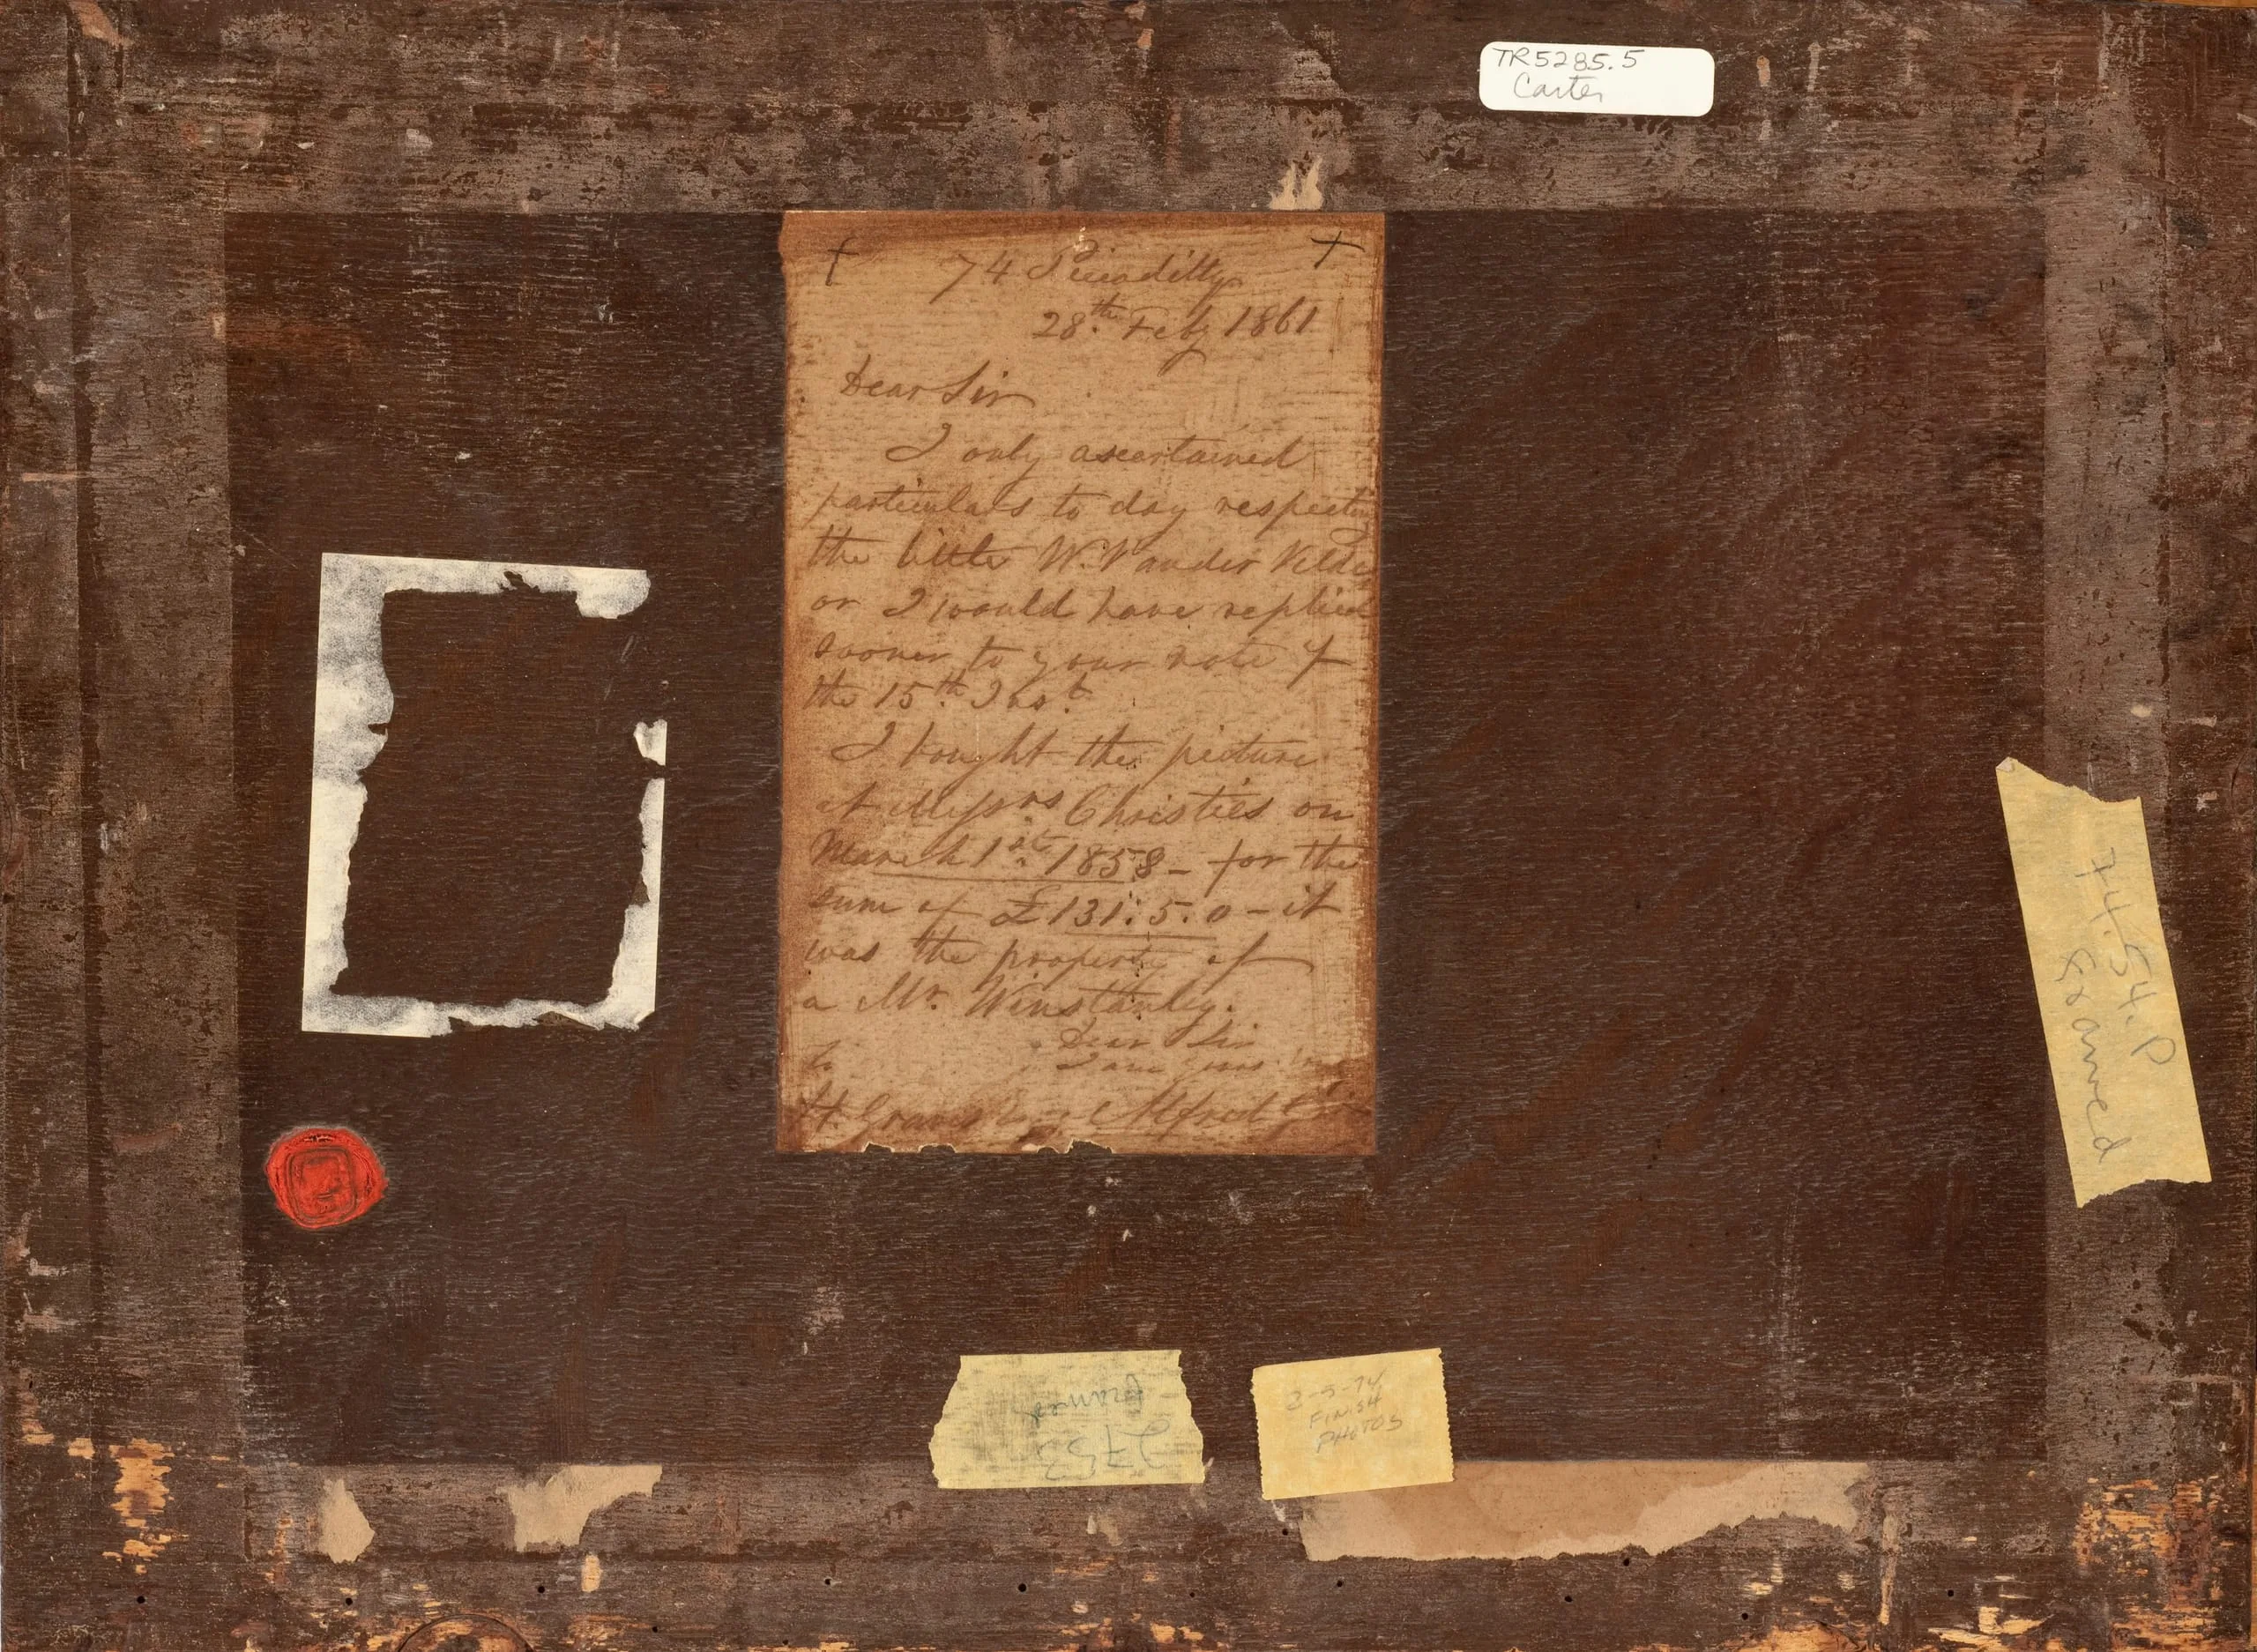 TR5285.5
Carter
74 Piccadilly
28th Feby 1861
Dear Sir
I only ascertained
particulars to day respecting
the little W. Vander Velde
or I would have replied
sooner to your note of
the 15th Inst.
I bought the picture
at Messrs Christies on
March 1st 1858 – for the
sum of £131:5:0 – it
was the property of
a Mr. Winstanley.
Dear Sir
I am yours
to
H. Graves Esq Alfred
74.54.P
Examed
2753
2-5-74
FINISH
PHOTOS